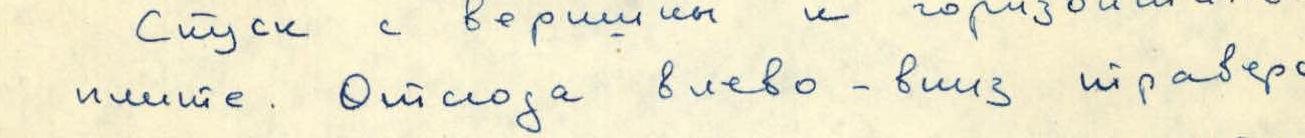 Спуск с вершины к горизонталь
плите. Отсюда влево - вниз траверс